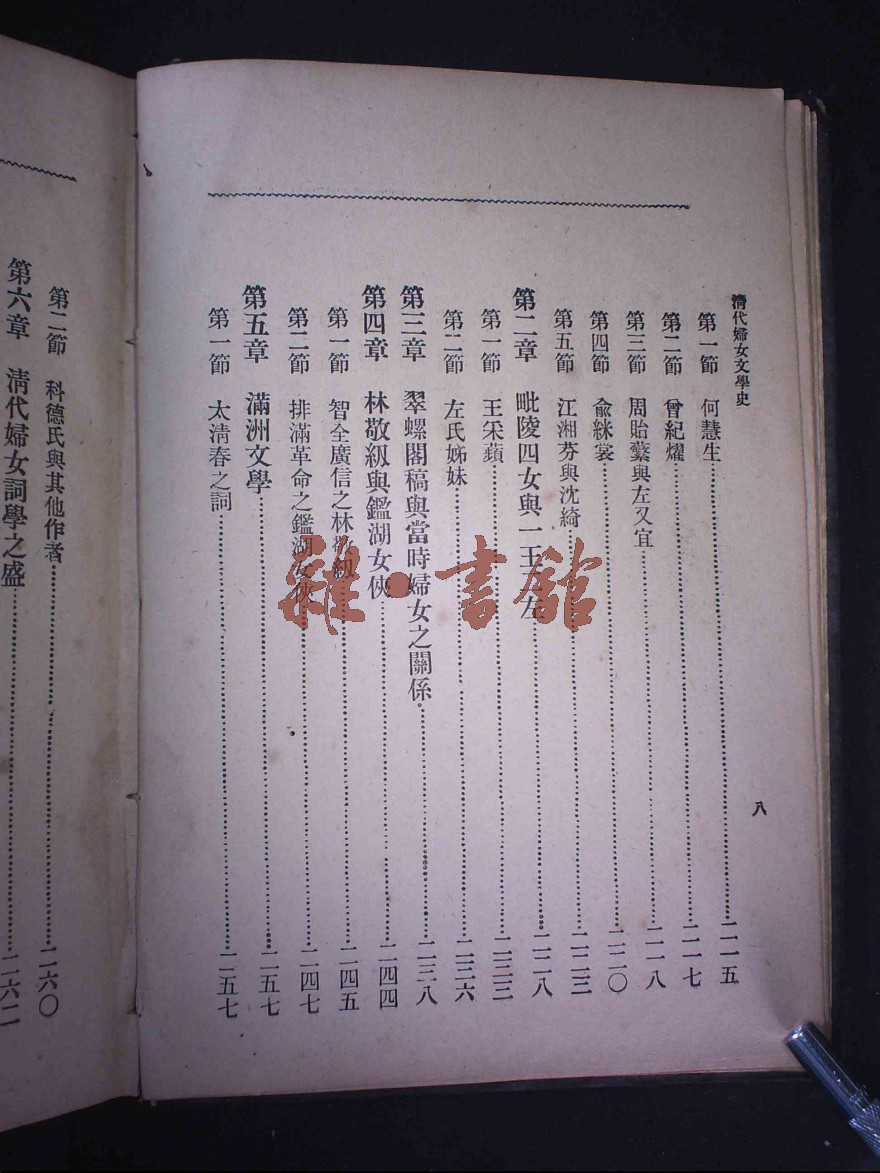 清代婦女文學史
第一節 何慧生 二一五
第二節 曾紀燿 二一七
第三節 周貽蘩與左又宜 二一八
第四節 俞繡裳 二二〇
第五節 江湘芬與沈綺 二二三
第二章 毗陵四女與一王 左 二二八
第一節 王采蘋 二三三
第二節 左氏姊妹 二三六
第三章 翠螺閣稿與當時婦女之關係 二三八
第四章 林敬紉與鑑湖女俠 二四四
第一節 智全廣信之林敬紉 二四五
第二節 排滿革命之鑑湖女俠 二四七
第五章 滿洲文學 二五七
第一節 太清春之詞 二五七
八
第二節 科德氏與其他作者 二六〇
第六章 清代婦女詞學之盛 二六二
雜·書館